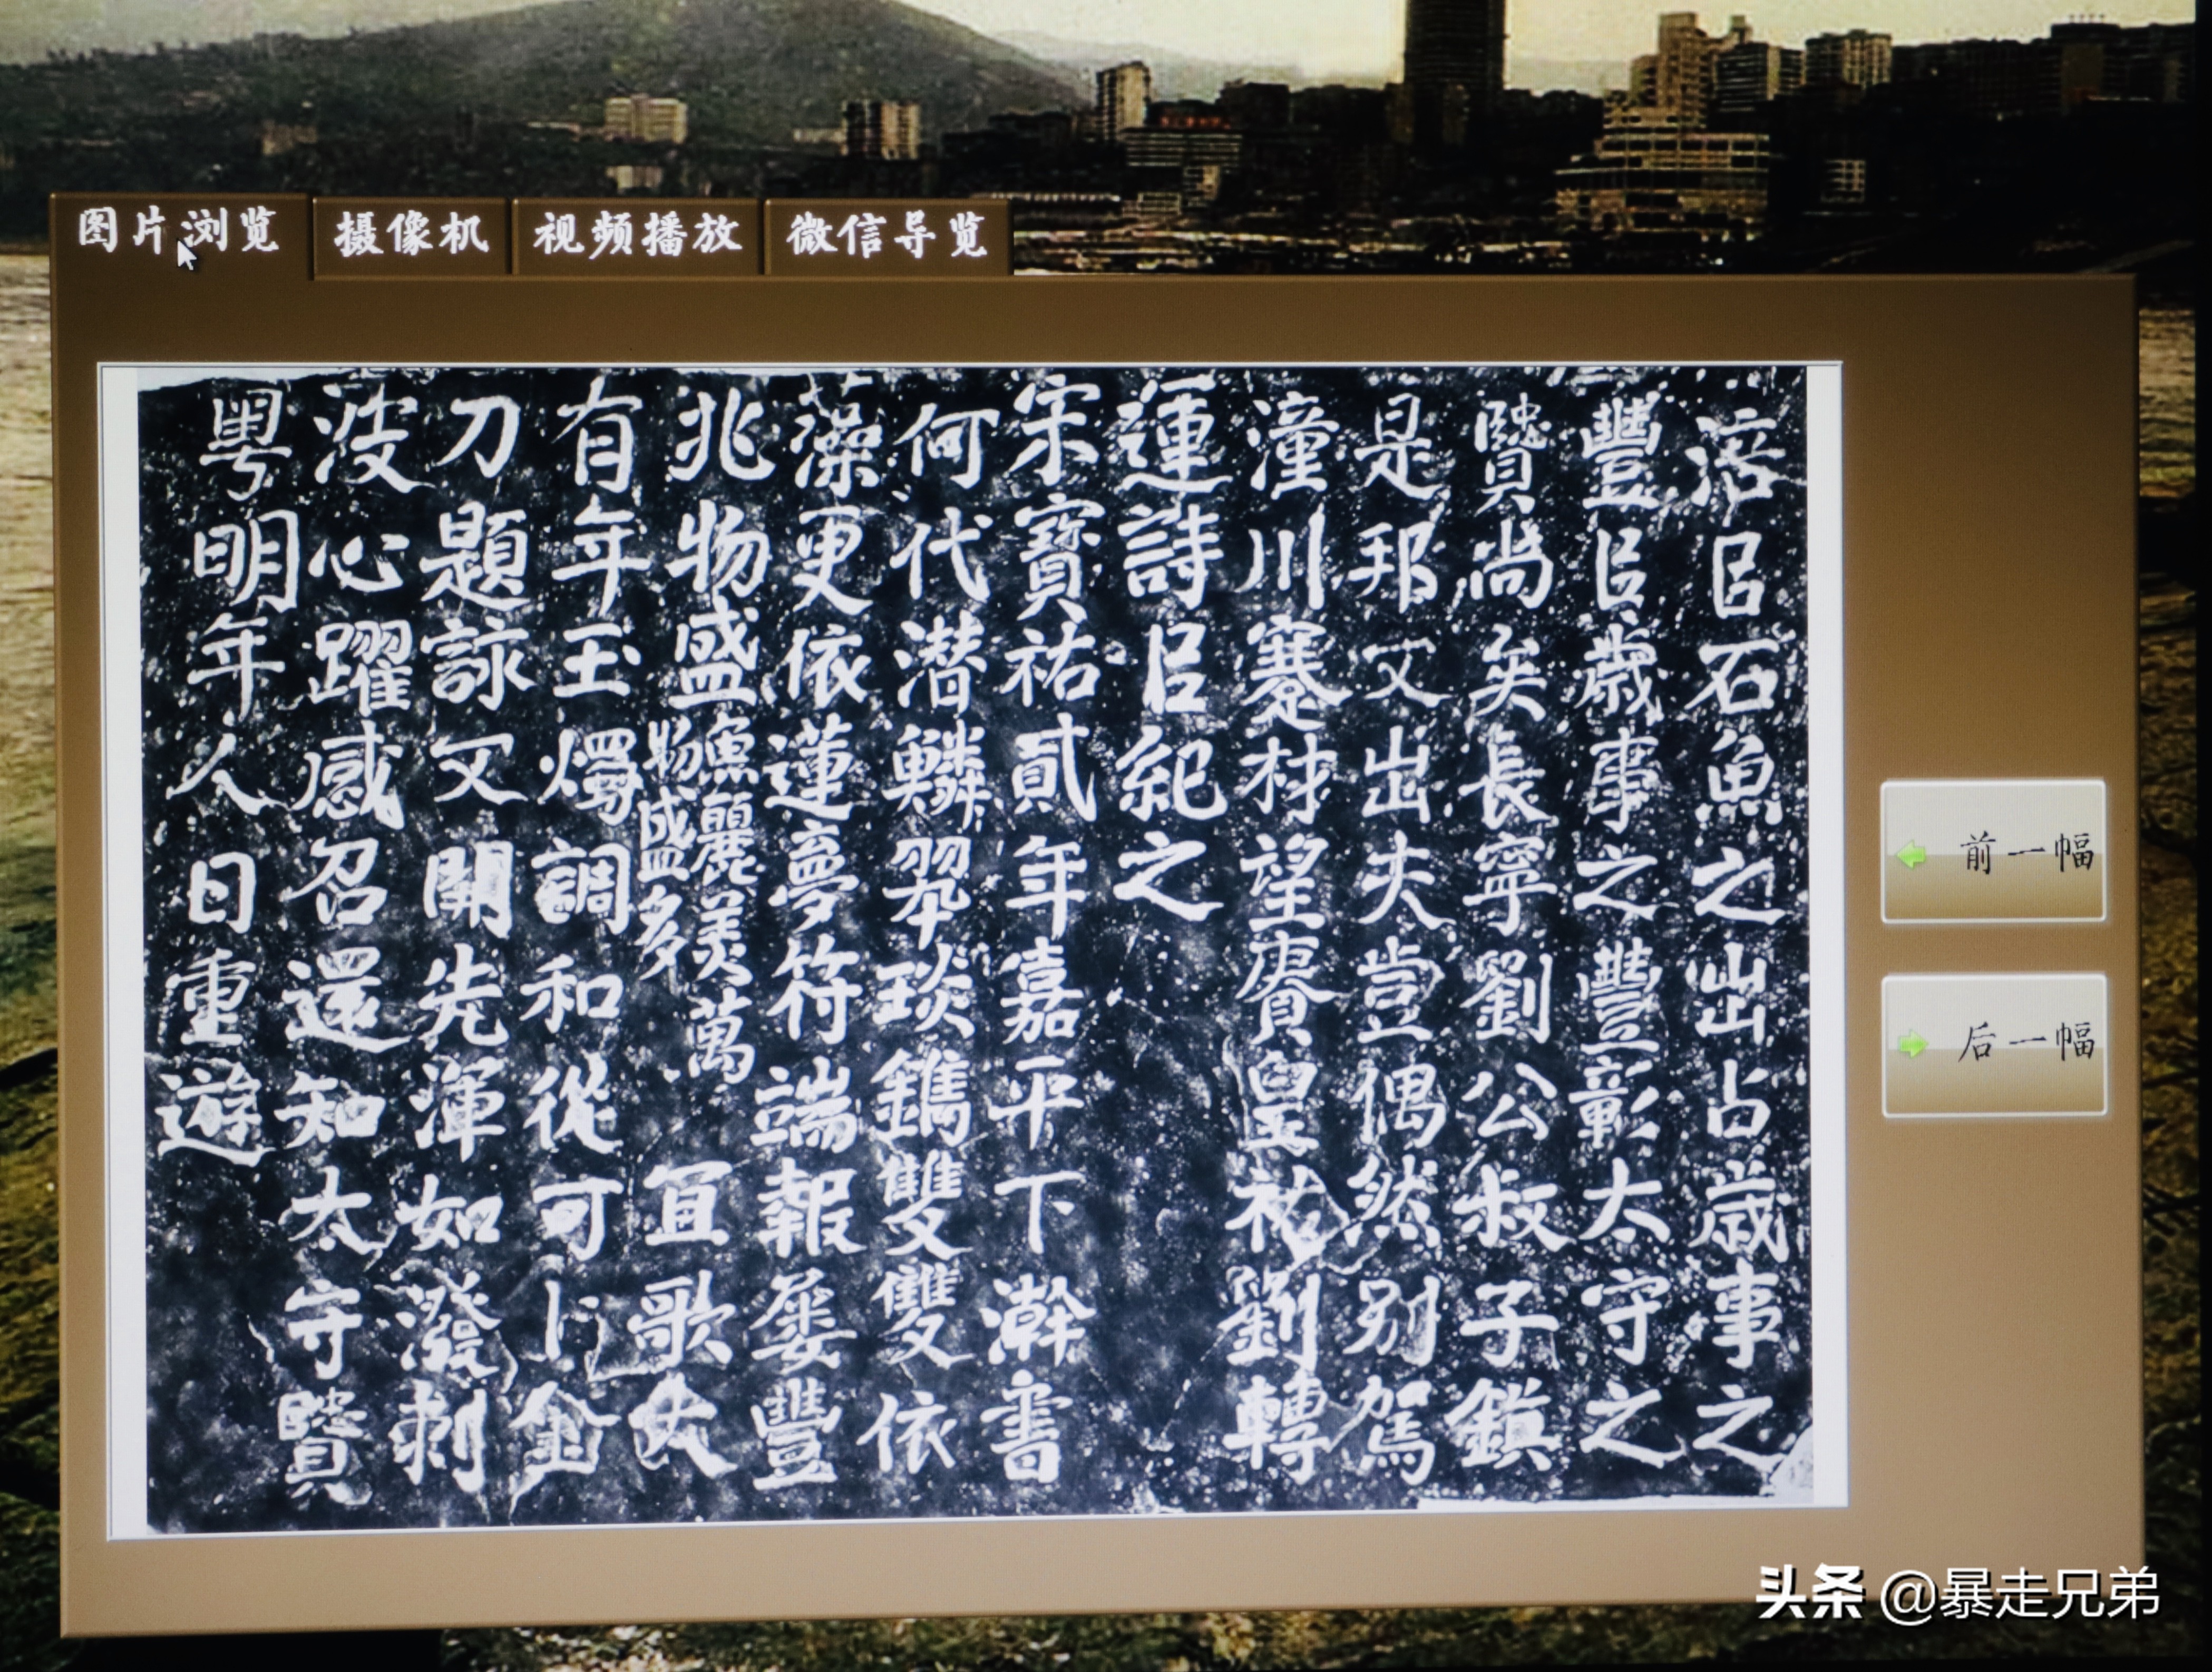 图片浏览
摄像机
视频播放
微信导览
涪㠯石魚之出占歲事之
豐㠯歲事之豐彰太守之
賢尚矣長寧劉公叔子鎮
是邦又出夫豈偶然別駕
潼川蹇材望賡皇祐劉轉
運詩㠯紀之
宋寶祐貳年嘉平下澣書
何代潛鱗翠琰鐫雙雙依
藻更依蓮夢符端報屢豐
兆物盛魚麗美萬物盛多宜歌大
有年玉燭調和從可卜金
刀題詠又開先渾如潑剌
波心躍感召還知太守賢
粤明年人日重遊
前一幅
后一幅
头条 @暴走兄弟